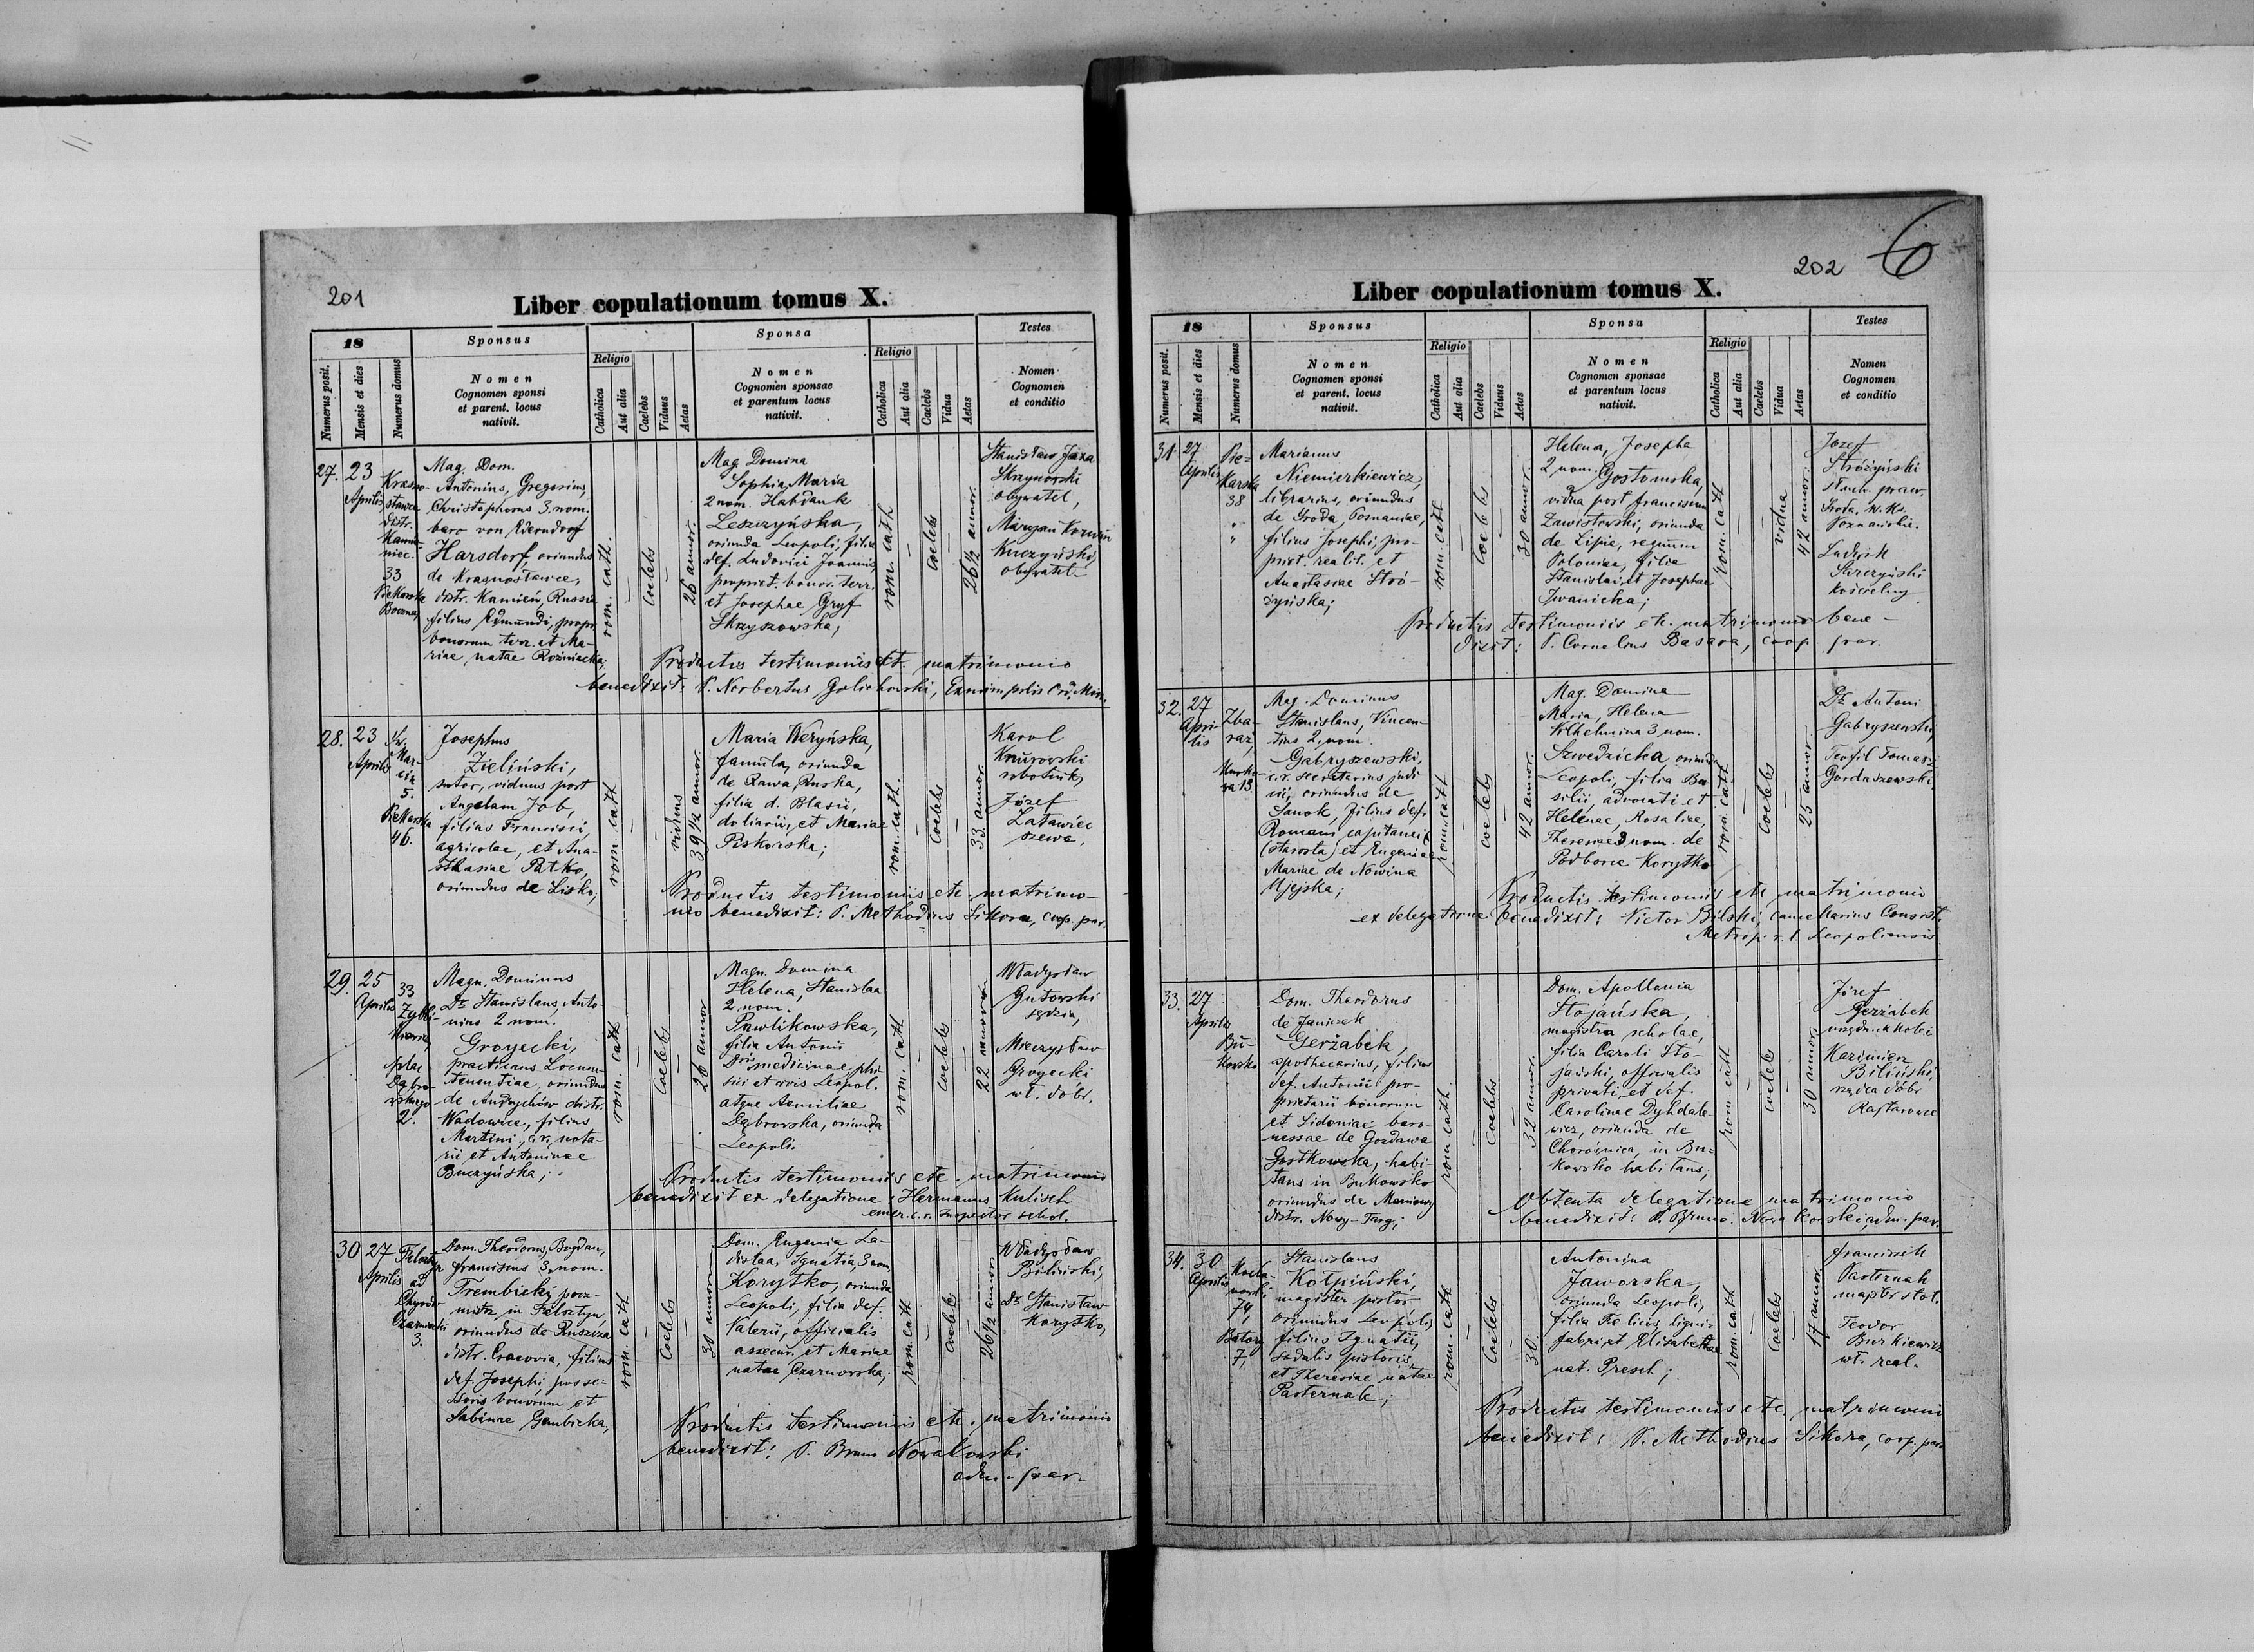 201
Liber copulationum tomus X.
18
Sponsus
Sponsa
Testes
Numerus posit.
Mensis et dies
Numerus domus
Nomen
Cognomen sponsi
et parent. locus
nativit.
Religio
Catholica
Aut alia
Caelebs
Viduus
Aetas
Nomen
Cognomen sponsae
et parentum locus
nativit.
Religio
Catholica
Aut alia
Caelebs
Vidua
Aetas
Nomen
Cognomen
et conditio
27.
23
Aprilis
distr.
33
Mag. Dom.
Antonius, Gregorius,
Christophorus 3. nom.
baro von
Harsdorf, oriundus
de
distr. Kamień, Russia
filius Edmundi, propr.
bonorum terr. et Ma-
riae natae
rom. cath.
coelebs
26 annor.
Mag. Domina
Sophia, Maria
2 nom. Habdank
Leszczyńska,
oriunda Leopoli, filia
def. Ludovici Joannis,
propriet. bonor. terr.
et Josephae Gryf
Skrzyszowska;
rom. cath
coelebs
26 1/2 annor.
Stanisław Jaxa
obywatel,
Maryan Korwin
Kuczyński,
obywatel.
Productis testimoniis et. matrimonio
benedixit: P. Norbertus Golichowski,
28.
23
Aprilis
Św.
Mar-
cin
5.
Piekarska
46.
Josephus
Zieliński,
sutor, viduus post
Angelam Job,
filius Francisci,
agricolae, et Ana-
stasiae Patko,
oriundus de Lisko;
rom. cath
viduus
39 1/2 annor.
Maria Weryńska,
famula, oriunda
de Rawa Ruska,
filia d. Blasii,
doliarii, et Mariae
Piskorska;
rom. cath.
coelebs
33 annor.
Karol
Knurowski
robotnik,
Józef
Productis testimoniis etc. matrimo-
nio benedixit: P. Methodius Sikora, coop. par.
29.
25
Aprilis
33
plac
Dąbro-
wskiego
2.
Magn. Dominus
Dr. Stanislaus, Anto-
nius 2 nom.
Groyecki,
practicans Locum-
tenentiae, oriundus
de Andrychów distr.
Wadowice, filius
Martini, c.r. nota-
rii et Antoninae
Buczyńska;
rom. cath
coelebs
26 annor
Magn. Domina
Helena, Stanislaa
2 nom.
Pawlikowska,
filia Antonii
Dris medicinae, phi-
sici et civis Leopol.
atque Aemiliae
Dąbrowska, oriunda
Leopoli.
rom. cath
coelebs
22 annorum
Władysław
Gutowski
sędzia,
Mieczysław
Groyecki
wł. dóbr.
Productis testimoniis etc. matrimonio
benedixit ex delegatione: Hermannus Kulisch
emer. c.r. inspector schol.
30
27
Aprilis
ad
Chyrów
3.
Dom. Theodorus, Bogdan,
Franciscus 3. nom.
Trembicki, pocz-
mistrz in Felsztyn,
oriundus de Ruszcza
distr. Cracovia, filius
def. Josephi, posses-
soris bonorum et
Sabinae Gembicka,
rom. cath
coelebs
30 annorum
Dom. Eugenia La-
dislaa, Ignatia, 3 nom.
Korytko, oriunda
Leopoli, filia def.
Valerii, officialis
assecur. et Mariae
natae Czarnowska;
rom. cath
coelebs
26 1/2 annor
Władysław
Biliński,
Dr. Stanisław
Korytko,
Productis testimoniis etc. matrimonio
benedixit: P. Bruno Nowakowski
adm. par.
202
6
Liber copulationum tomus X.
18
Sponsus
Sponsa
Testes
Numerus posit.
Mensis et dies
Numerus domus
Nomen
Cognomen sponsi
et parent. locus
nativit.
Religio
Catholica
Aut alia
Caelebs
Viduus
Aetas
Nomen
Cognomen sponsae
et parentum locus
nativit.
Religio
Catholica
Aut alia
Caelebs
Vidua
Aetas
Nomen
Cognomen
et conditio
31.
27
Aprilis
Pie-
karska
38
Marianus
Niemierkiewicz,
librarius, oriundus
de Środa, Posnaniae,
filius Josephi, pro-
priet. realit. et
Anastasiae Stró-
żyńska;
rom. cath
coelebs
30 annor.
Helena, Josepha
2 nom. Gostomska,
vidua post Franciscum
Zawistowski, oriunda
de Lipie, regnum
Poloniae, filia
Stanislai, et Josephae
Iwanicka;
rom. cath
vidua
42 annor.
Józef
Stróżyński
Środa, W. Ks.
Poznańskie.
Ludwik
kościelny
Productis testimoniis etc. matrimonio bene-
dixit: P. Cornelius Basara, coop. par.
32.
27
Apri-
lis
Zba-
raż,
13.
Mag. Dominus
Stanislaus, Vincen-
tius 2. nom.
Gabryszewski,
c.r. secretarius judi-
cii, oriundus de
Sanok, filius def.
Romani, capitanei
(starosta) et Eugeniae
Mariae de Nowina
Ujejska;
rom. cath
coelebs
42 annor.
Mag. Domina
Maria, Helena
Wilhelmina 3. nom.
Szwedzicka oriunda
Leopoli, filia Ba-
silii, advocati et
Helenae, Rosaliae,
Theresiae 3 nom. de
Podborce Korytko
rom. cath
coelebs
25 annor
Dr. Antoni
Gabryszewski,
Teofil Tomasz
Gordaszewski,
Productis testimoniis etc. matrimonio
ex delegatione benedixit: Victor Bilski, cancellarius Consist.
Metrop. r. l. Leopoliensis.
33.
27
Aprilis
Bu-
kowsko
Dom. Theodorus
de Janiszek
Gerżabek,
apothecarius, filius
def. Antonii pro-
prietarii bonorum
et Sidoniae baro-
nessae de Gozdawa
Gostkowska, habi-
tans in Bukowsko
oriundus de Maniowy
distr. Nowy-Targ;
rom. cath
coelebs
32 annor.
Dom. Apollonia
Stojańska,
magistra scholae,
filia Caroli Sto-
jański, officialis
privati, et def.
Carolinae Dyhdale-
wicz, oriunda de
Chorośnica, in Bu-
kowsko habitans;
rom. cath
coelebs
30 annor
Józef
Gerżabek
urzędnik kolei
Kazimierz
Biliński,
rządca dóbr
Obtenta delegatione matrimonio
benedixit: P. Bruno Nowakowski, adm. par.
34.
30
Aprilis
Kocha-
nowski
74,
Batory
7,
Stanislaus
Kołpiński,
magister pistor
oriundus Leopoli,
filius Ignatii,
sodalis pistoris,
et Theresiae natae
Pasternak;
rom. cath
coelebs
30.
Antonina
Jaworska,
oriunda Leopoli,
filia Felicis, ligni-
fabri, et Elisabethae
nat. Presch;
rom. cath
coelebs
17 annor
Franciszek
Pasternak
majster stol.
Teodor
Burkiewicz
wł. real.
Productis testimoniis etc. matrimonio
benedixit: P. Methodius Sikora, coop. par.